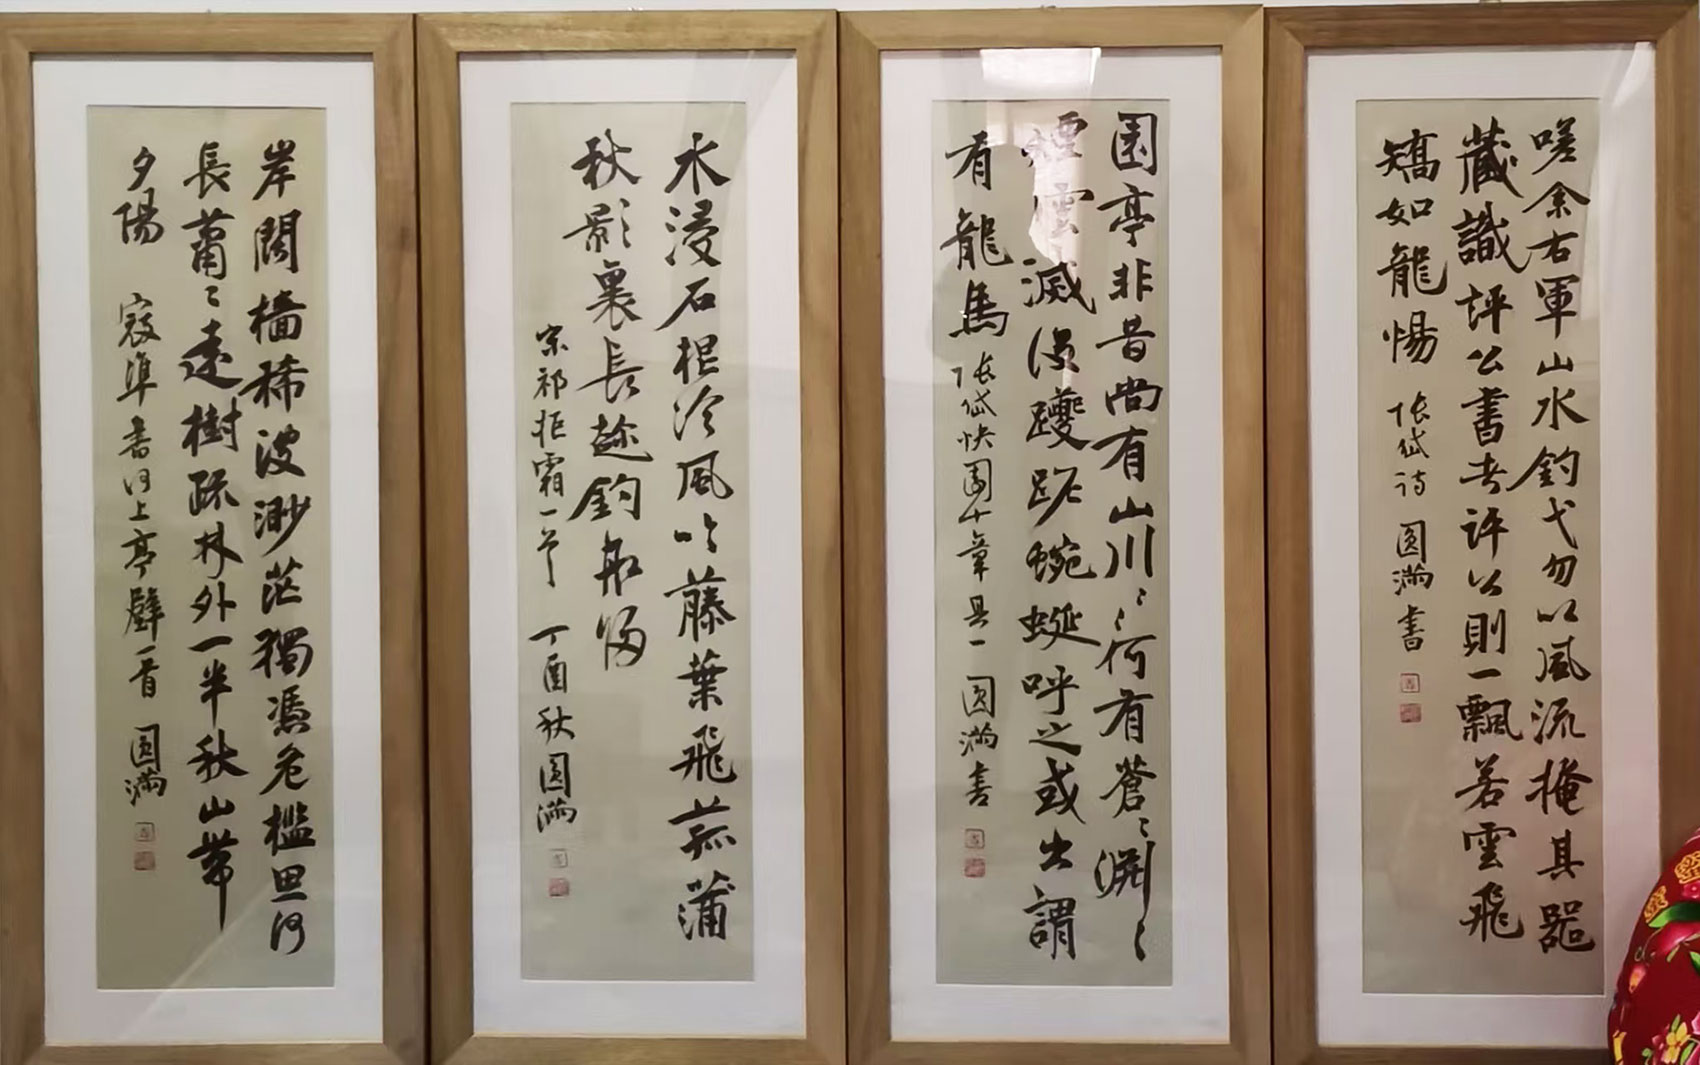 嗟余右軍山水釣弋勿以風流掩其器
藏識評公書者評公則一飄若雲飛
矯如龍惕 張岱詩 圓滿書
園亭非昔尚有山川〻〻何有蒼〻淵〻
煙雲滅沒躨跜蜿蜒呼之或出謂
有龍馬 張岱快園十章其一 圓滿書
水浸石根冷風吹藤葉飛菰蒲
秋影裏長趂釣船歸
宋祁拒霜一首 丁酉秋圓滿
岸闊檣稀波渺茫獨憑危檻思何
長蕭〻遠樹疏林外一半秋山帶
夕陽 寇準書河上亭壁一首 圓滿